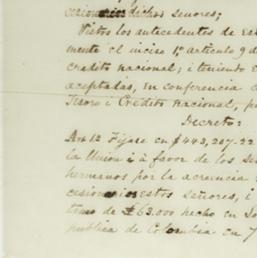 cesionarios dichos señores;
Vistos los antecedentes de est
mente el inciso 1º artículo 9 d
credito nacional; i teniendo e
aceptadas, en conferencia c
Tesoro i Crédito Nacional, p
Decreto:
Art 1º Fijase en $443,257-22
la Union i á favor de los se
hermanos por la acreencia
cesionarios estos señores, i
tamo de £63.000 hecho en Lo
pública de Colombia en 7